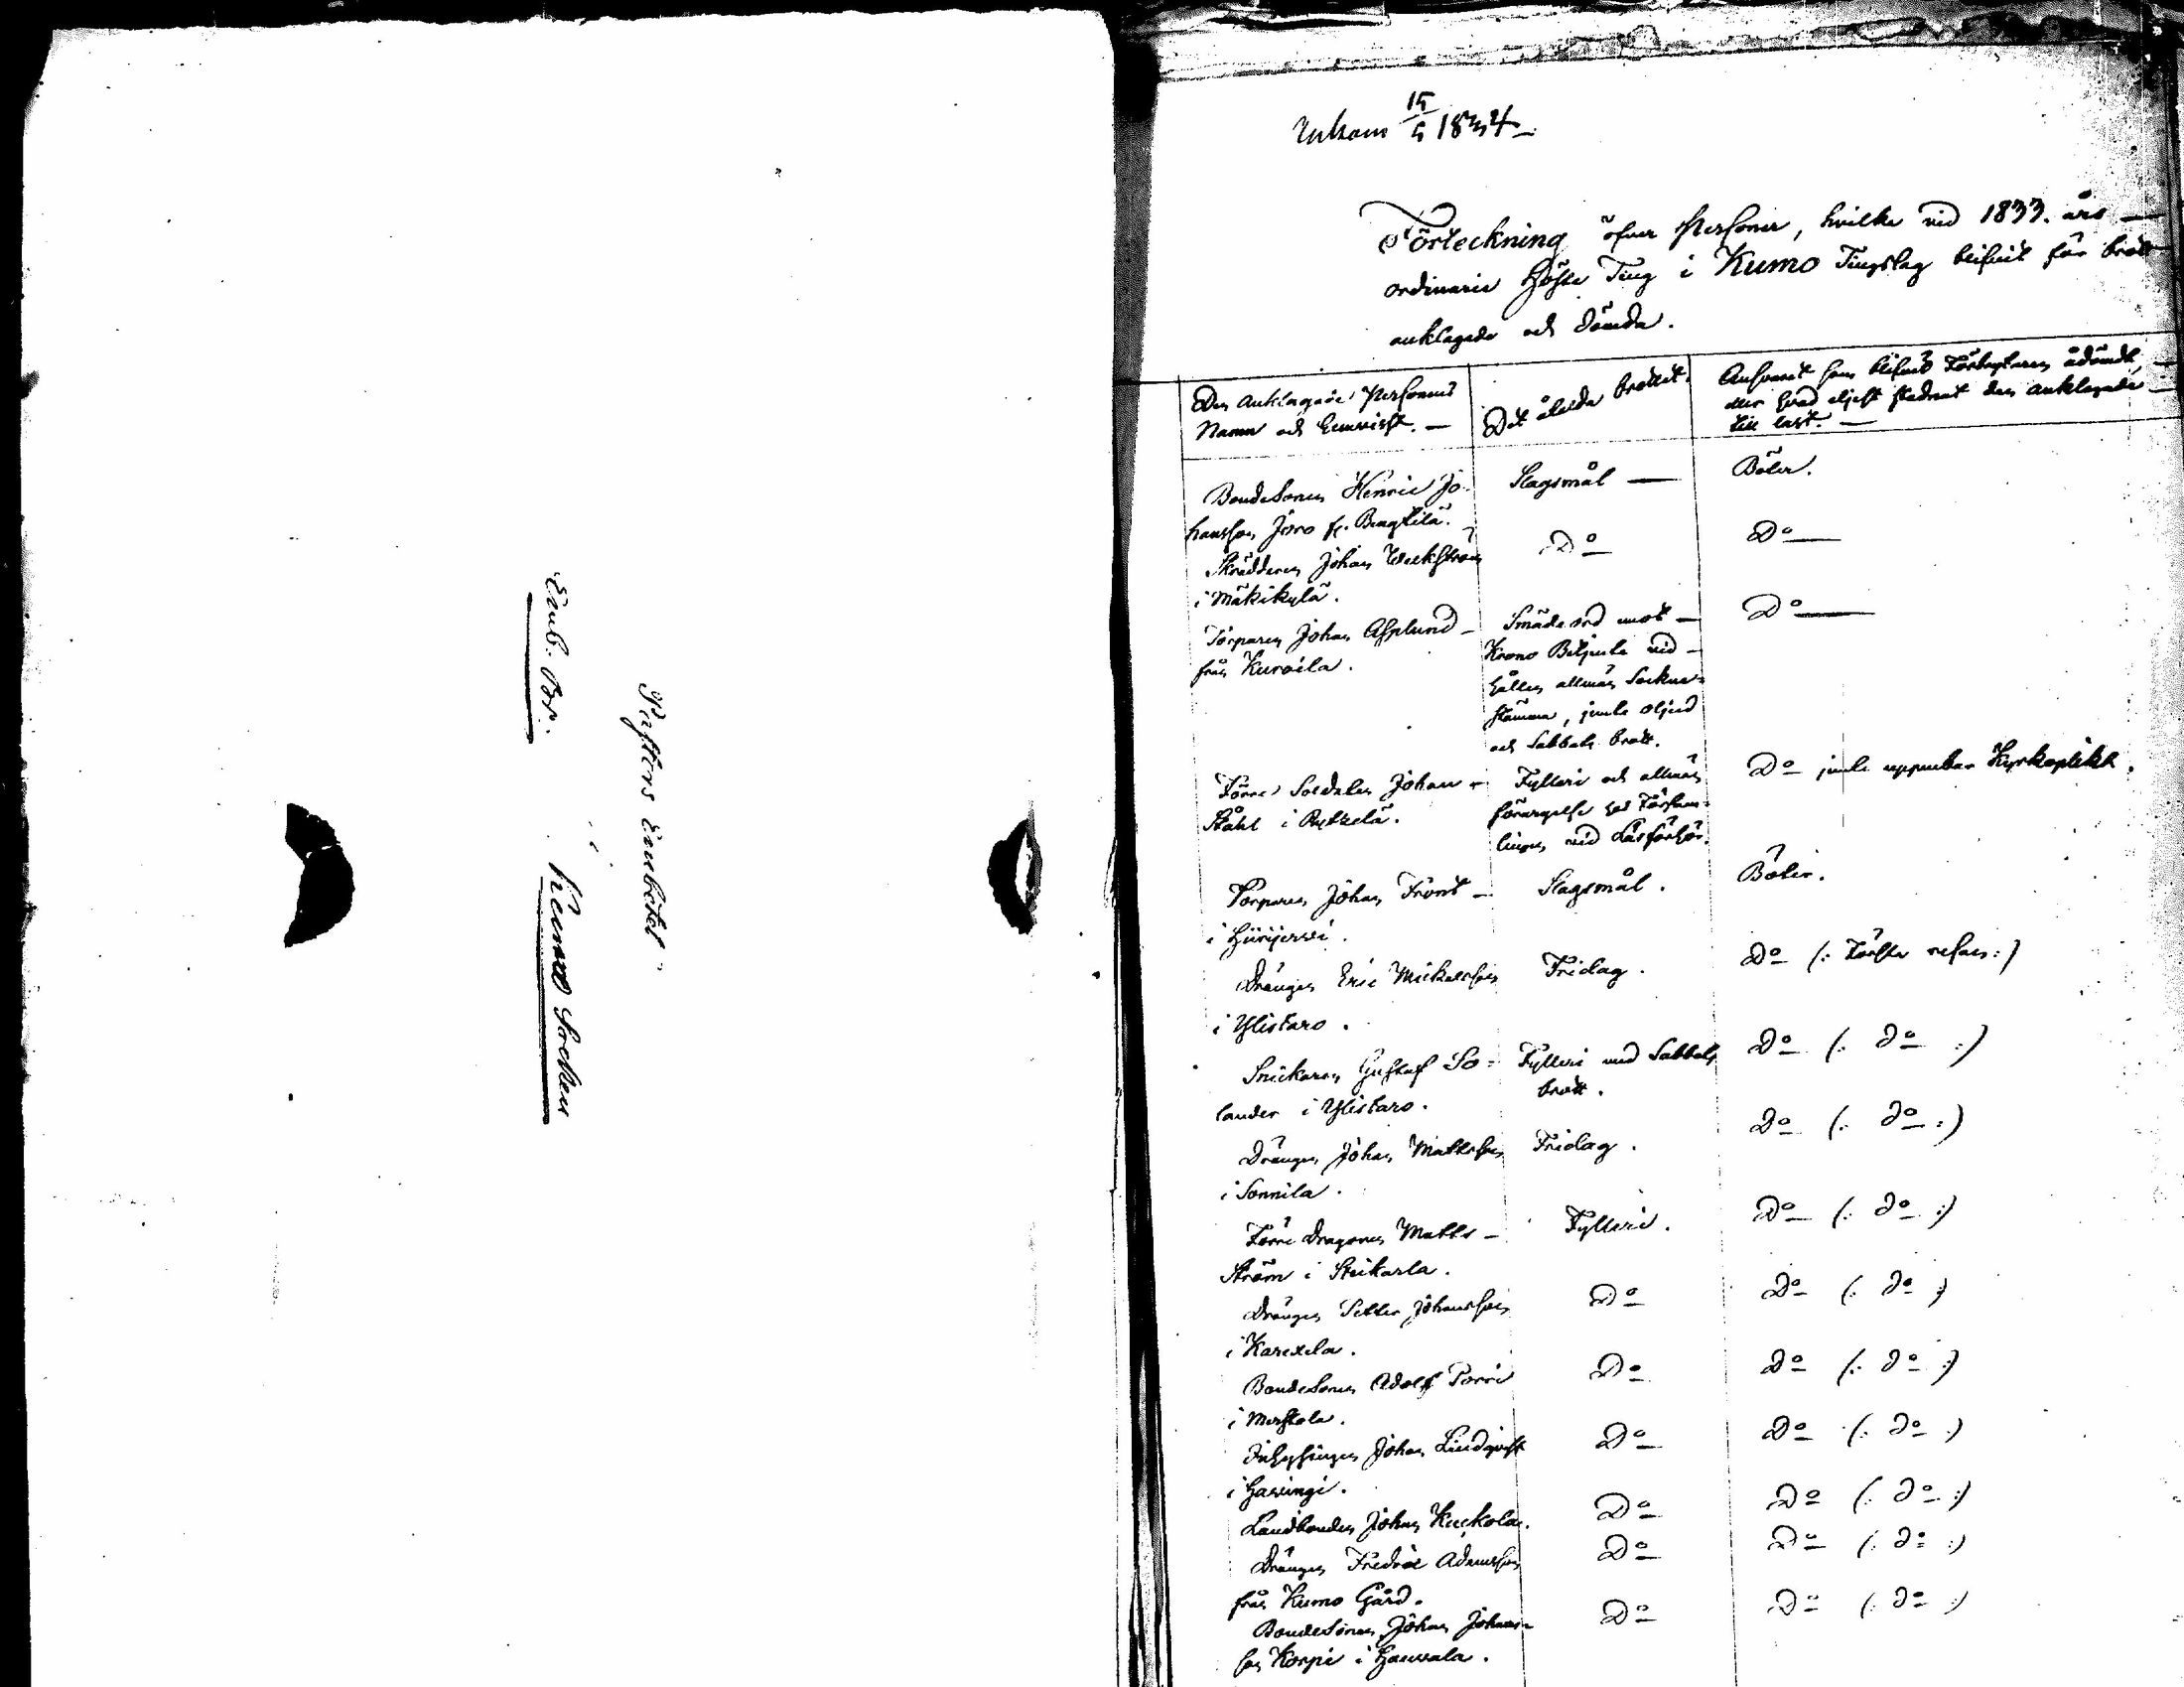 Pastors Embetet
Emb. Br. Kiukais Socken
Inkom 15/5 1834
Förteckning öfver Personer, hvilke vid 1833. års
ordinarie Höste Ting i Kumo Tingslag blifvit för brott
anklagade och dömda.
Den anklagade Personens
Namn och hemvist.
Det åtalda brottet.
Ansvaret som blifvit Förbrytaren ådömdt,
eller hvad eljest stadnat den anklagade
till last.
BondeSonen Henric Jo-
hansson Juro fr. Bengtilä.
Slagsmål
Böter.
Skräddaren Johan Weckström
i Mäkikylä.
Do
Do
Torparen Johan Asplund
från Kuroila.
Smädeord mot
Krono Betjente vid
hållen allmän Sockne-
stämma, jemte oljud
och Sabbats brott.
Do
Förre Soldaten Johan
Ståhl i Pytkelä.
Fylleri och allmän
förargelse hos Försam-
lingen vid Läsförhör.
Do jemte uppenbar Kyrkoplikt.
Torparen Johan Front
i Hiirijerwi.
Slagsmål.
Böter.
Drängen Eric Mickelsson
i Ylistaro.
Fridag.
Do (: Förste resan :)
Snickaren Gustaf So-
lander i Ylistaro.
Fylleri med Sabbats
brott.
Do (: do :)
Drängen Johan Mattsson
i Sonnila.
Fridag.
Do (: do :)
Förre Dragonen Matts
Ström i Steikarla.
Fylleri.
Do (: do :)
Drängen Johansson
i Karexela.
Do
Do (: do :)
BondeSonen Adolf Porri
i Merstola.
Do
Do (: do :)
Inhysingen Johan Lindqvist
i Havingi.
Do
Do (: do :)
Landbonden Johan Kuckola.
Do
Do (: do :)
Drängen Fredric Adamsson
från Kumo Gård.
Do
Do (: do :)
BondeSonen Johan Johans-
son Korpi i Hanvala.
Do
Do (: do :)